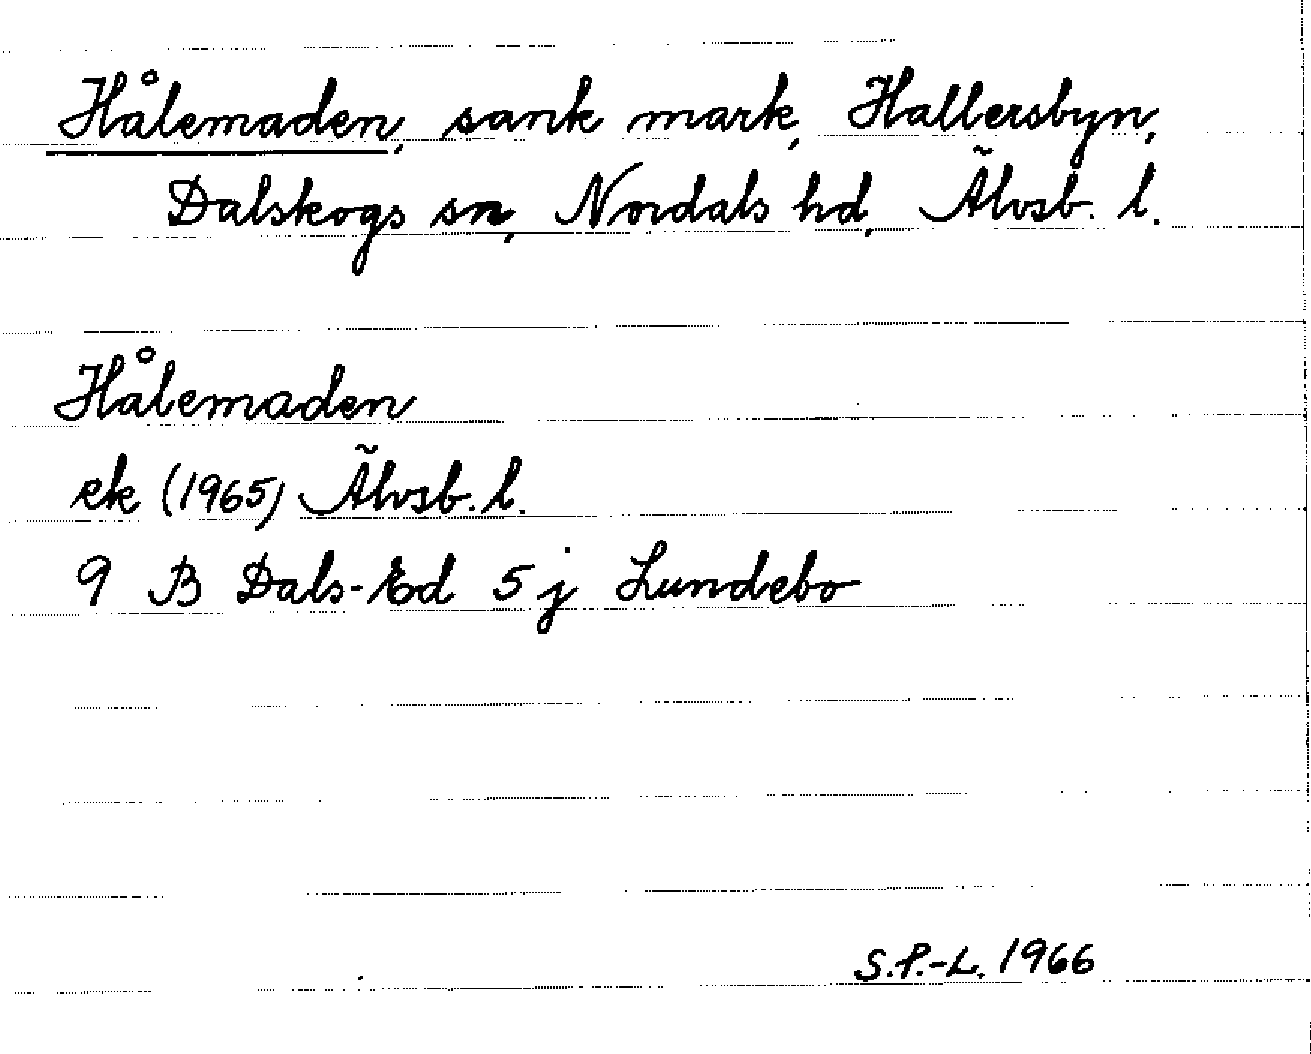 Hålemaden, sank mark, Hallersbyn,
Dalskogs sn, Nordals hd, Älvsb. l.
Hålemaden
ek (1965) Älvsb. l.
9 B Dals-Ed 5 j Lundebo
S.P.-L. 1966